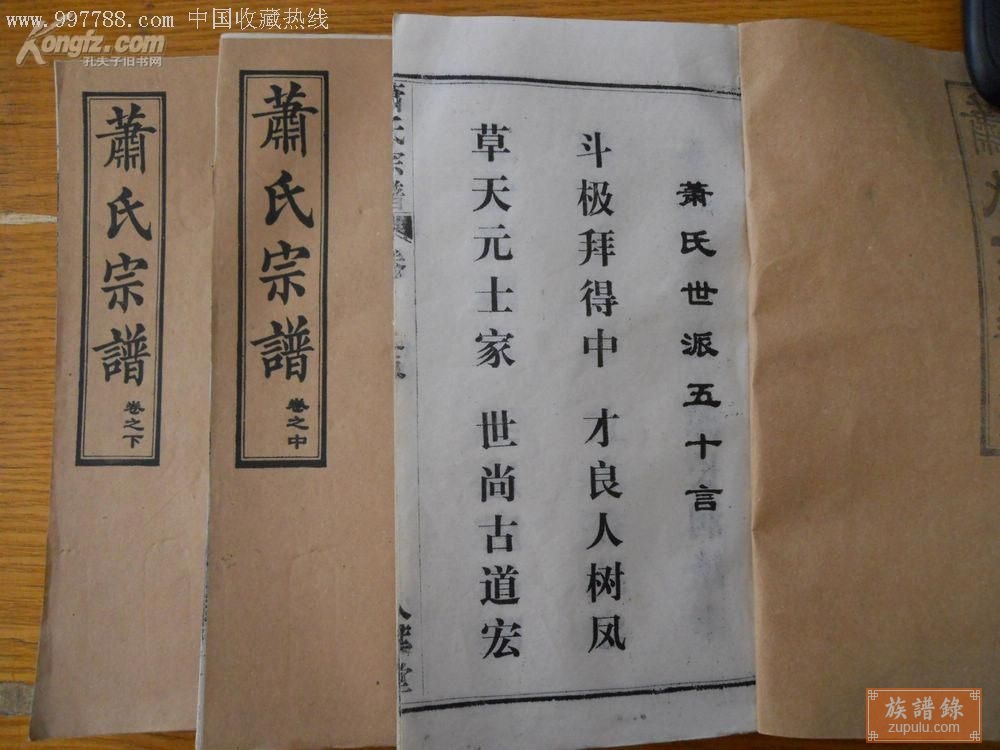 www.997788.com 中国收藏热线
Kongfz.com
孔夫子旧书网
蕭氏宗譜
卷之下
蕭氏宗譜
卷之中
萧氏世派五十言
斗极拜得中 才良人树凤
草天元士家 世尚古道宏
萧氏宗譜
族譜錄
zupulu.com